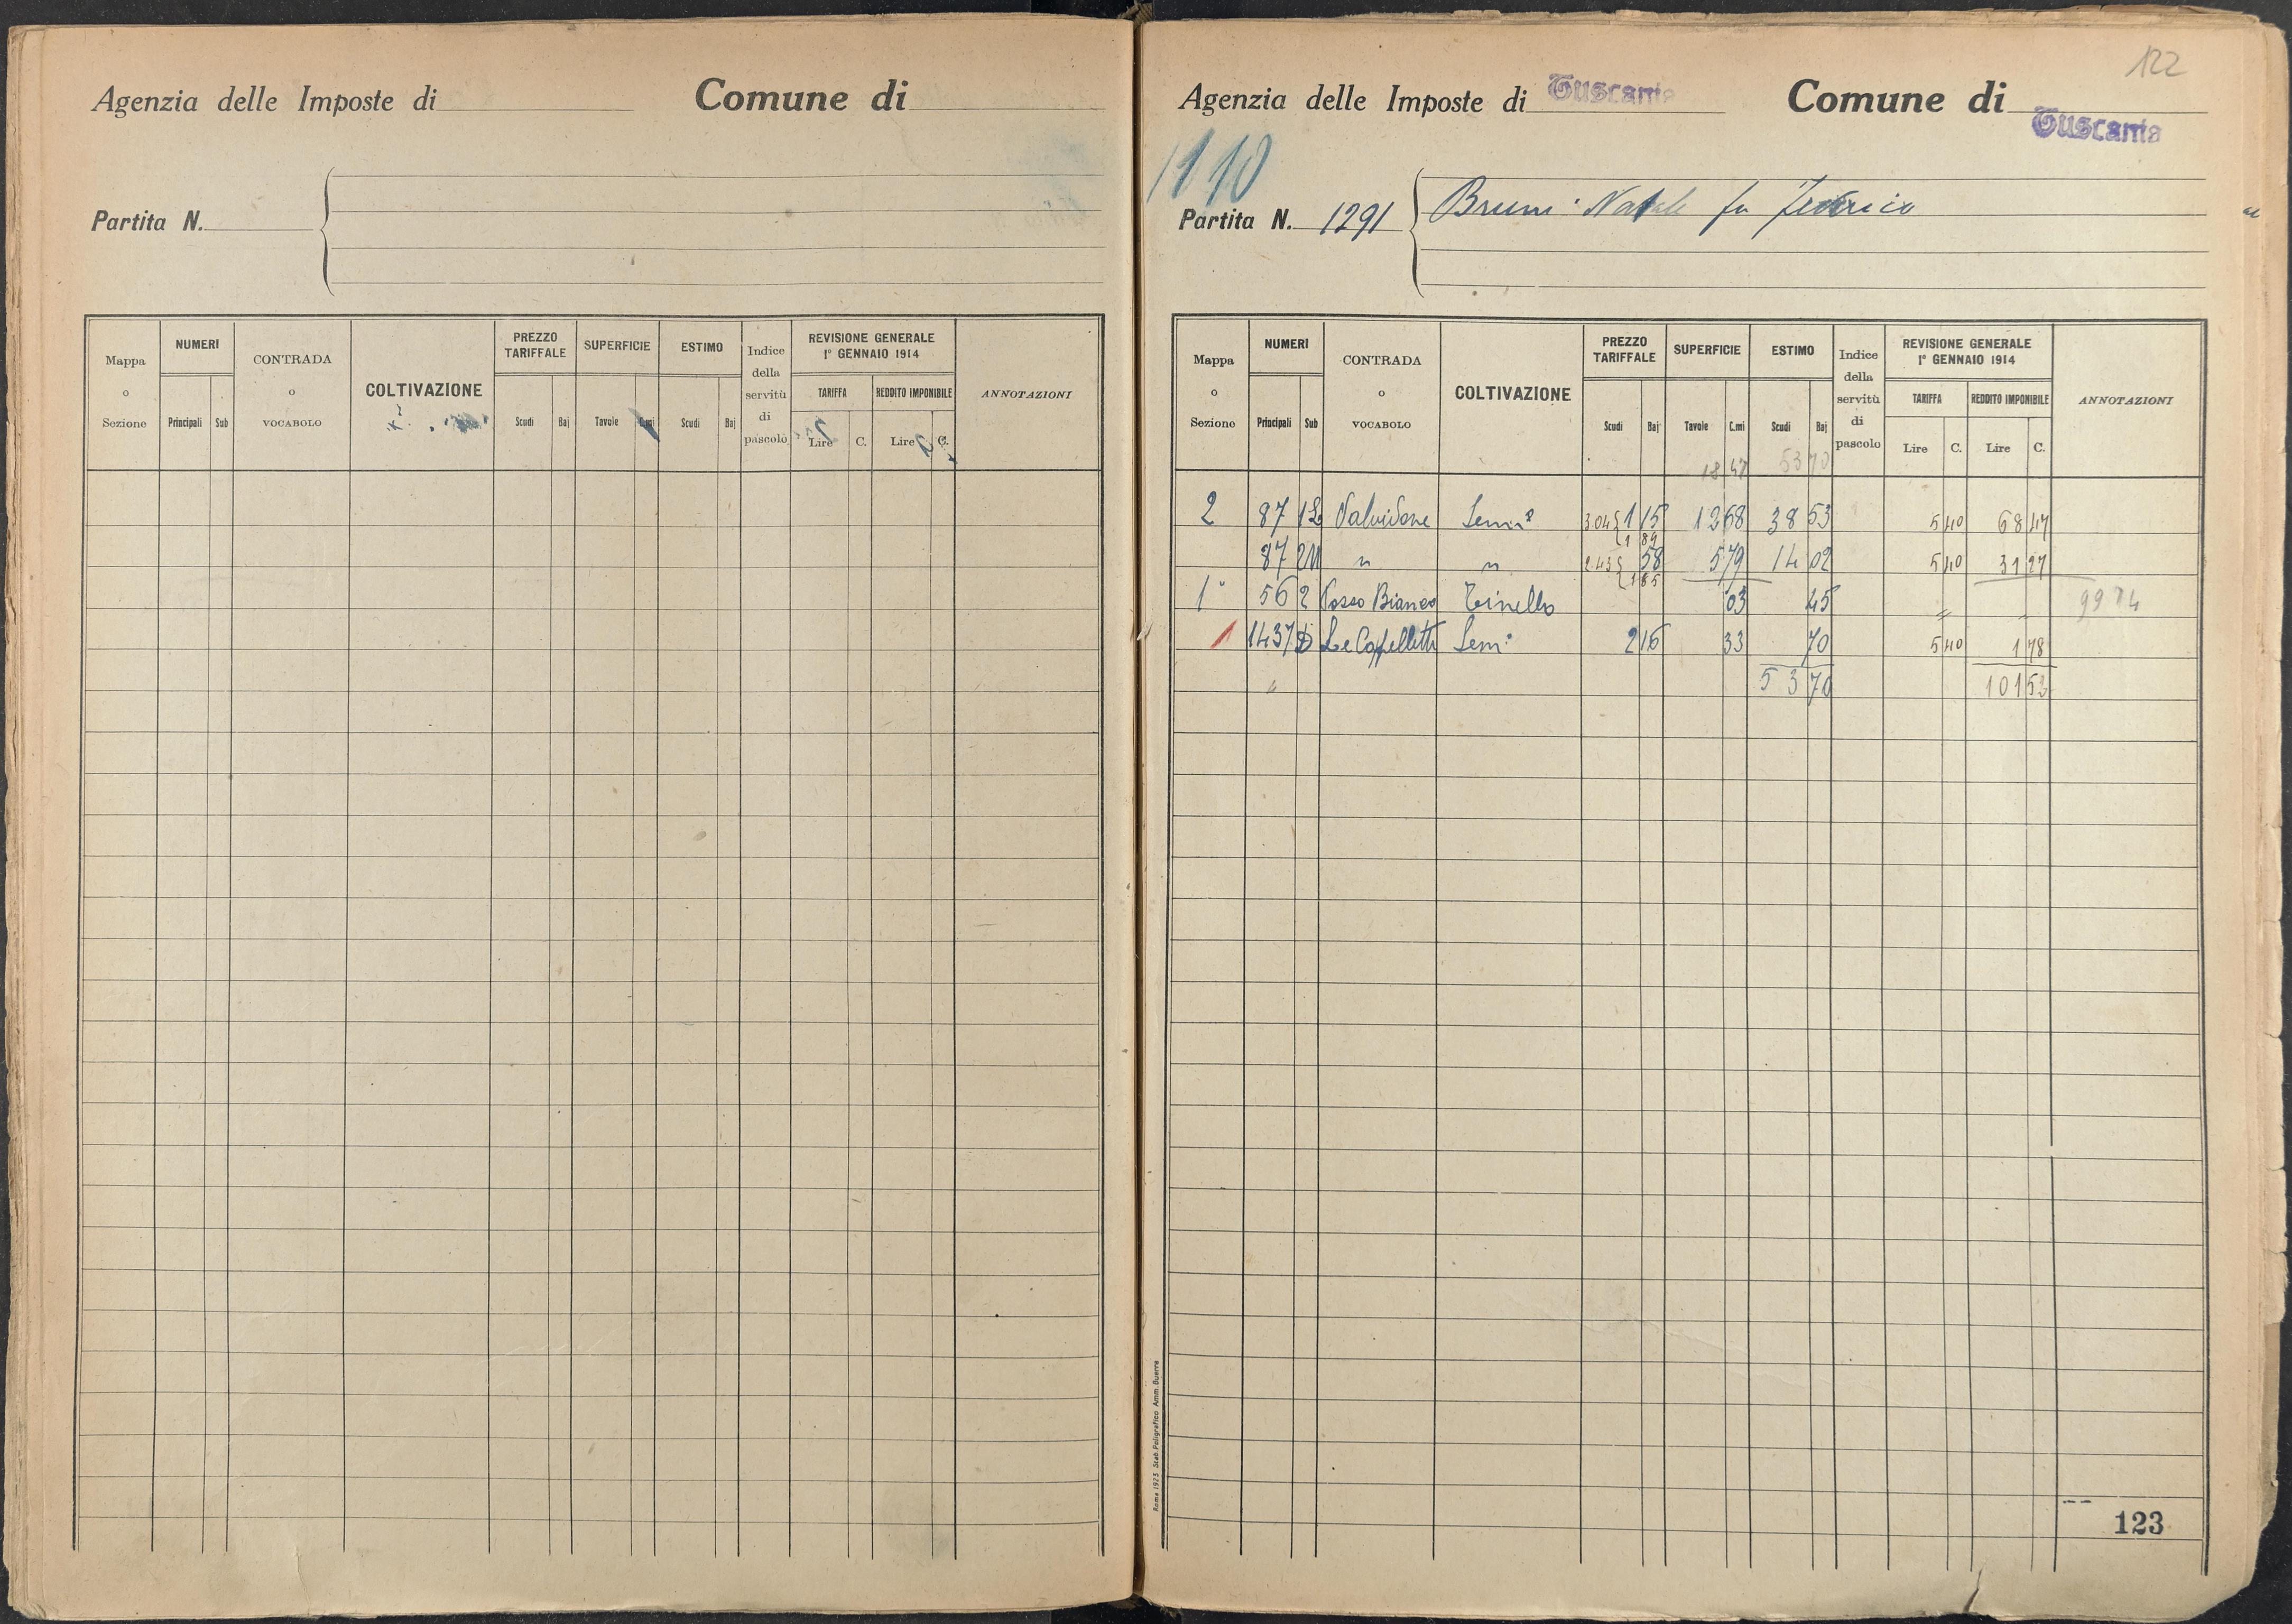 Agenzia delle Imposte di
Comune di
Partita N.
Mappa o Sezione
NUMERI
Principali Sub
CONTRADA o VOCABOLO
COLTIVAZIONE
PREZZO TARIFFALE
Scudi Baj
SUPERFICIE
Tavole C.mi
ESTIMO
Scudi Baj
Indice della servitù di pascolo
REVISIONE GENERALE
1° GENNAIO 1914
TARIFFA
Lire C.
REDDITO IMPONIBILE
Lire C.
ANNOTAZIONI
122
Agenzia delle Imposte di Tuscania
Comune di Tuscania
1110
Partita N. 1291
Bruni Natale fu Federico
Mappa o Sezione
NUMERI
Principali Sub
CONTRADA o VOCABOLO
COLTIVAZIONE
PREZZO TARIFFALE
Scudi Baj
SUPERFICIE
Tavole C.mi
ESTIMO
Scudi Baj
Indice della servitù di pascolo
REVISIONE GENERALE
1° GENNAIO 1914
TARIFFA
Lire C.
REDDITO IMPONIBILE
Lire C.
ANNOTAZIONI
18 47 53 70
2 87 Valvidone 304 1 15 12 68 38 53 5 40 68 47
1 89
87 " " 243 58 5 79 14 02 5 40 31 27
1 85
1° 56 2 Fosso Bianco Tinello 03 45 " " 99 74
1 1437 Le Cappellette Sem° 2 15 33 70 5 40 1 78
" 53 70 101 52
Roma 1925 Stab. Poligrafico Amm. Guerra
123